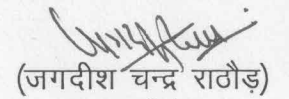 (जगदीश चन्द्र राठौड़)